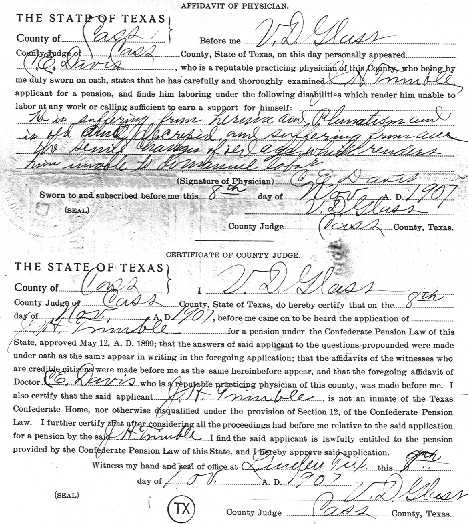 AFFIDAVIT OF PHYSICIAN.
THE STATE OF TEXAS
County of Cass Before me V. D. Glass
County Judge of Cass County, State of Texas, on this day personally appeared
C. E. Davis, who is a reputable practicing physician of this County, who being by
me duly sworn on oath, states that he has carefully and thoroughly examined Trimble
applicant for a pension, and finds him laboring under the following disabilities which render him unable to
labor at any work or calling sufficient to earn a support for himself:
He is suffering from hernia and Rheumatism and
is old and and suffering from
of old age which renders
him unable to do manual labor
(Signature of Physician) C. E. Davis
Sworn to and subscribed before me this 8th day of Nov A. D. 1907
V. D. Glass
(SEAL) County Judge Cass County, Texas.
CERTIFICATE OF COUNTY JUDGE.
THE STATE OF TEXAS
County of Cass I V. D. Glass
County Judge of Cass County, State of Texas, do hereby certify that on the 8th
day of Nov. A. D. 1907, before me came on to be heard the application of
Trimble for a pension under the Confederate Pension Law of this
State, approved May 12, A. D. 1899; that the answers of said applicant to the questions propounded were made
under oath as the same appear in writing in the foregoing application; that the affidavits of the witnesses who
are credible citizens were made before me as the same hereinbefore appear, and that the foregoing affidavit of
Doctor C. E. Davis who is a reputable practicing physician of this county, was made before me. I
also certify that the said applicant Trimble, is not an inmate of the Texas
Confederate Home, nor otherwise disqualified under the provision of Section 12, of the Confederate Pension
Law. I further certify that after considering all the proceedings had before me relative to the said application
for a pension by the said Trimble I find the said applicant is lawfully entitled to the pension
provided by the Confederate Pension Law of this State, and I hereby approve said application.
Witness my hand and seal of office at Linden Tex this 8th
day of Nov A. D. 1907
V. D. Glass
(SEAL) County Judge Cass County, Texas.
TX